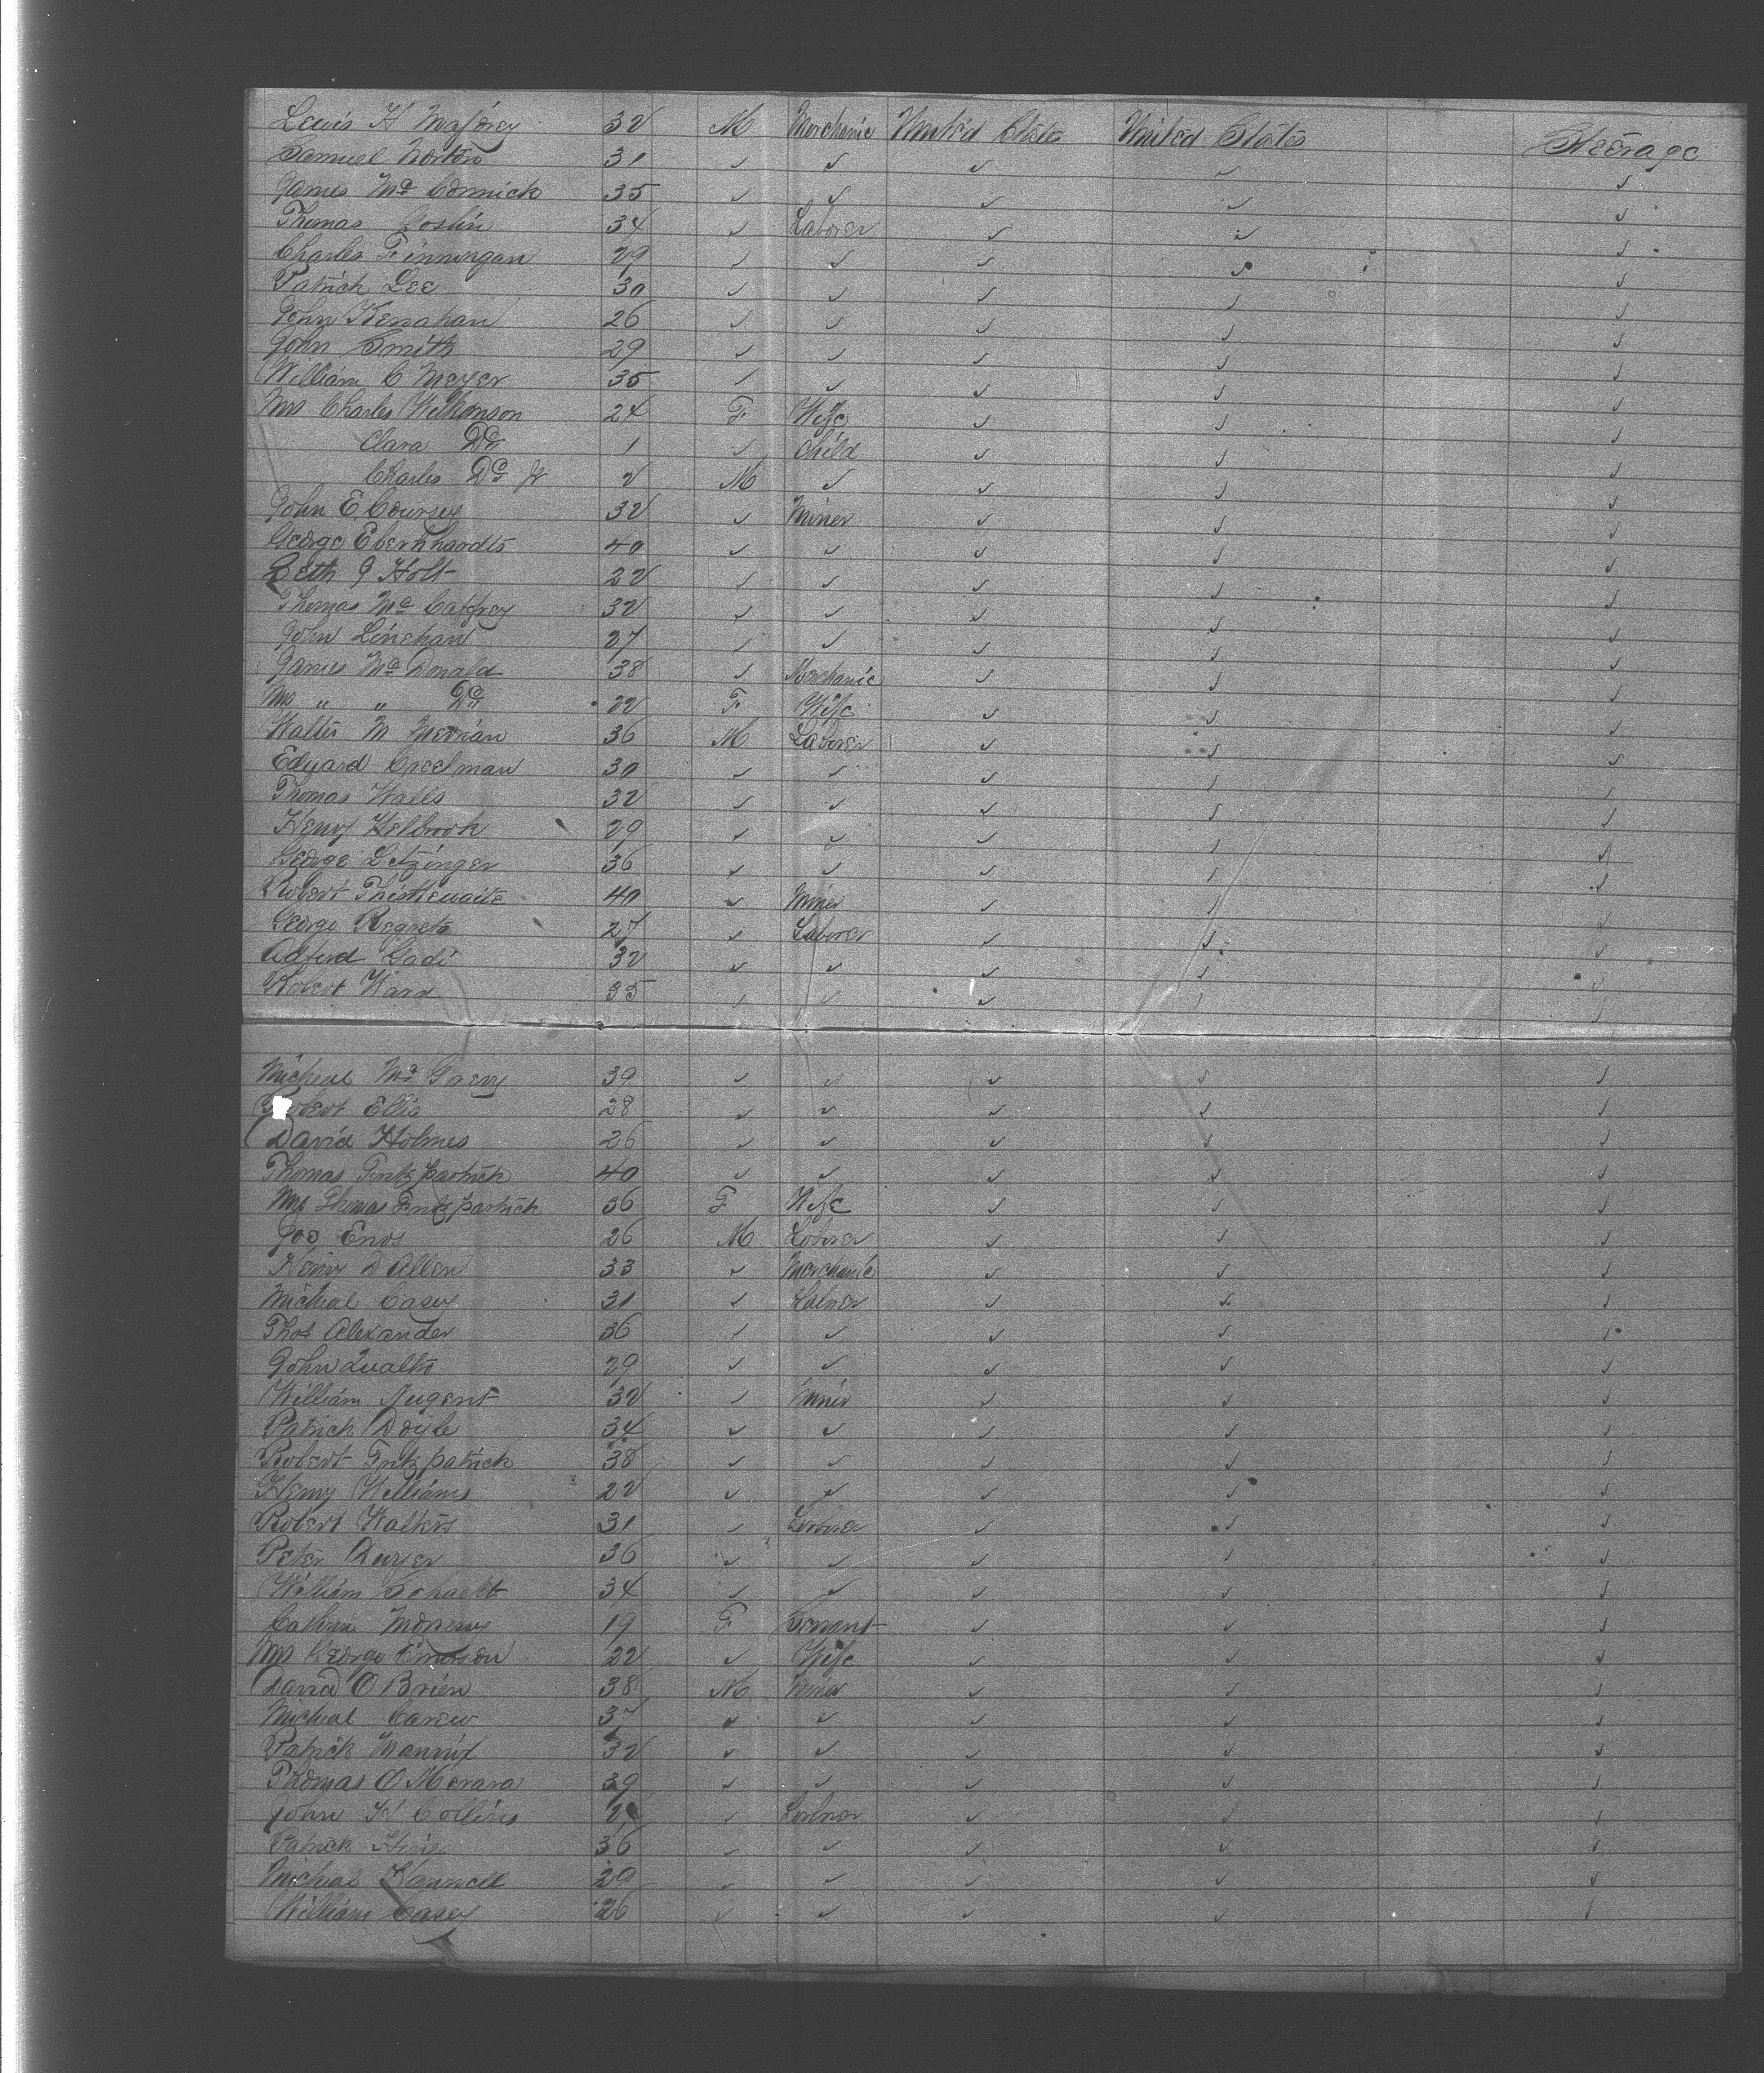 Lewis H 32 M Merchanic United States United States Steerage
Samuel Norton 31 ✓ ✓ ✓ ✓ ✓
James Mc Cormick 35 ✓ ✓ ✓ ✓ ✓
Thomas Coslin 34 ✓ Laborer ✓ ✓ ✓
Charles Finningan 29 ✓ ✓ ✓ ✓ ✓
Patrick Lee 30 ✓ ✓ ✓ ✓ ✓
John Kenahan 26 ✓ ✓ ✓ ✓ ✓
John Smith 29 ✓ ✓ ✓ ✓ ✓
William C Meyer 35 ✓ ✓ ✓ ✓ ✓
Mrs Charles Wilkinson 24 F Wife ✓ ✓ ✓
Clara Do 1 ✓ Child ✓ ✓ ✓
Charles Do Jr 2 M ✓ ✓ ✓ ✓
John E Coursey 32 ✓ Miner ✓ ✓ ✓
George Eberhhardts 40 ✓ ✓ ✓ ✓ ✓
Seth J Holt 22 ✓ ✓ ✓ ✓ ✓
Thomas Mc Caffrey 32 ✓ ✓ ✓ ✓ ✓
John Linehan 27 ✓ ✓ ✓ ✓ ✓
James Mc Donald 38 ✓ Merchanic ✓ ✓ ✓
Mrs " " Do 22 F Wife ✓ ✓ ✓
Walter M Merrian 36 M Laborer ✓ ✓ ✓
Edward Creelman 30 ✓ ✓ ✓ ✓ ✓
Thomas Walls 32 ✓ ✓ ✓ ✓ ✓
Henry Helbrook 29 ✓ ✓ ✓ ✓ ✓
George Letzinger 36 ✓ ✓ ✓ ✓ ✓
Robert Thistlewaite 40 ✓ Miner ✓ ✓ ✓
George Regreto 27 ✓ Laborer ✓ ✓ ✓
Adferd Gadi 32 ✓ ✓ ✓ ✓ ✓
Robert Ward 35 ✓ ✓ ✓ ✓ ✓
Micheal Mc 39 ✓ ✓ ✓ ✓ ✓
Ellis 28 ✓ ✓ ✓ ✓ ✓
David Holmes 26 ✓ ✓ ✓ ✓ ✓
Thomas Fritzpartrick 40 ✓ ✓ ✓ ✓ ✓
Mrs Thomas Fritzpartrick 36 F Wife ✓ ✓ ✓
Joe Enos 26 M Laborer ✓ ✓ ✓
Henry D Allen 33 ✓ Merchanic ✓ ✓ ✓
Micheal Casey 31 ✓ Laborer ✓ ✓ ✓
Thos Alexander 36 ✓ ✓ ✓ ✓ ✓
John Qualto 29 ✓ ✓ ✓ ✓ ✓
William Nugent 32 ✓ Miner ✓ ✓ ✓
Patrick Doyle 34 ✓ ✓ ✓ ✓ ✓
Robert Fritzpatrick 38 ✓ ✓ ✓ ✓ ✓
Henry Williams 22 ✓ ✓ ✓ ✓ ✓
Robert Walkers 31 ✓ Laborer ✓ ✓ ✓
Peter Dwyer 36 ✓ ✓ ✓ ✓ ✓
William Schackt 34 ✓ ✓ ✓ ✓ ✓
19 F Servant ✓ ✓ ✓
Mrs George Emerson 22 ✓ Wife ✓ ✓ ✓
David O Brien 38 M Miner ✓ ✓ ✓
Micheal Carew 37 ✓ ✓ ✓ ✓ ✓
Patrick Mannix 32 ✓ ✓ ✓ ✓ ✓
Thomas O Merara 39 ✓ ✓ ✓ ✓ ✓
John H Collins ✓ Laborer ✓ ✓ ✓
Patrick 36 ✓ ✓ ✓ ✓ ✓
Micheal 29 ✓ ✓ ✓ ✓ ✓
William Casey 26 ✓ ✓ ✓ ✓ ✓